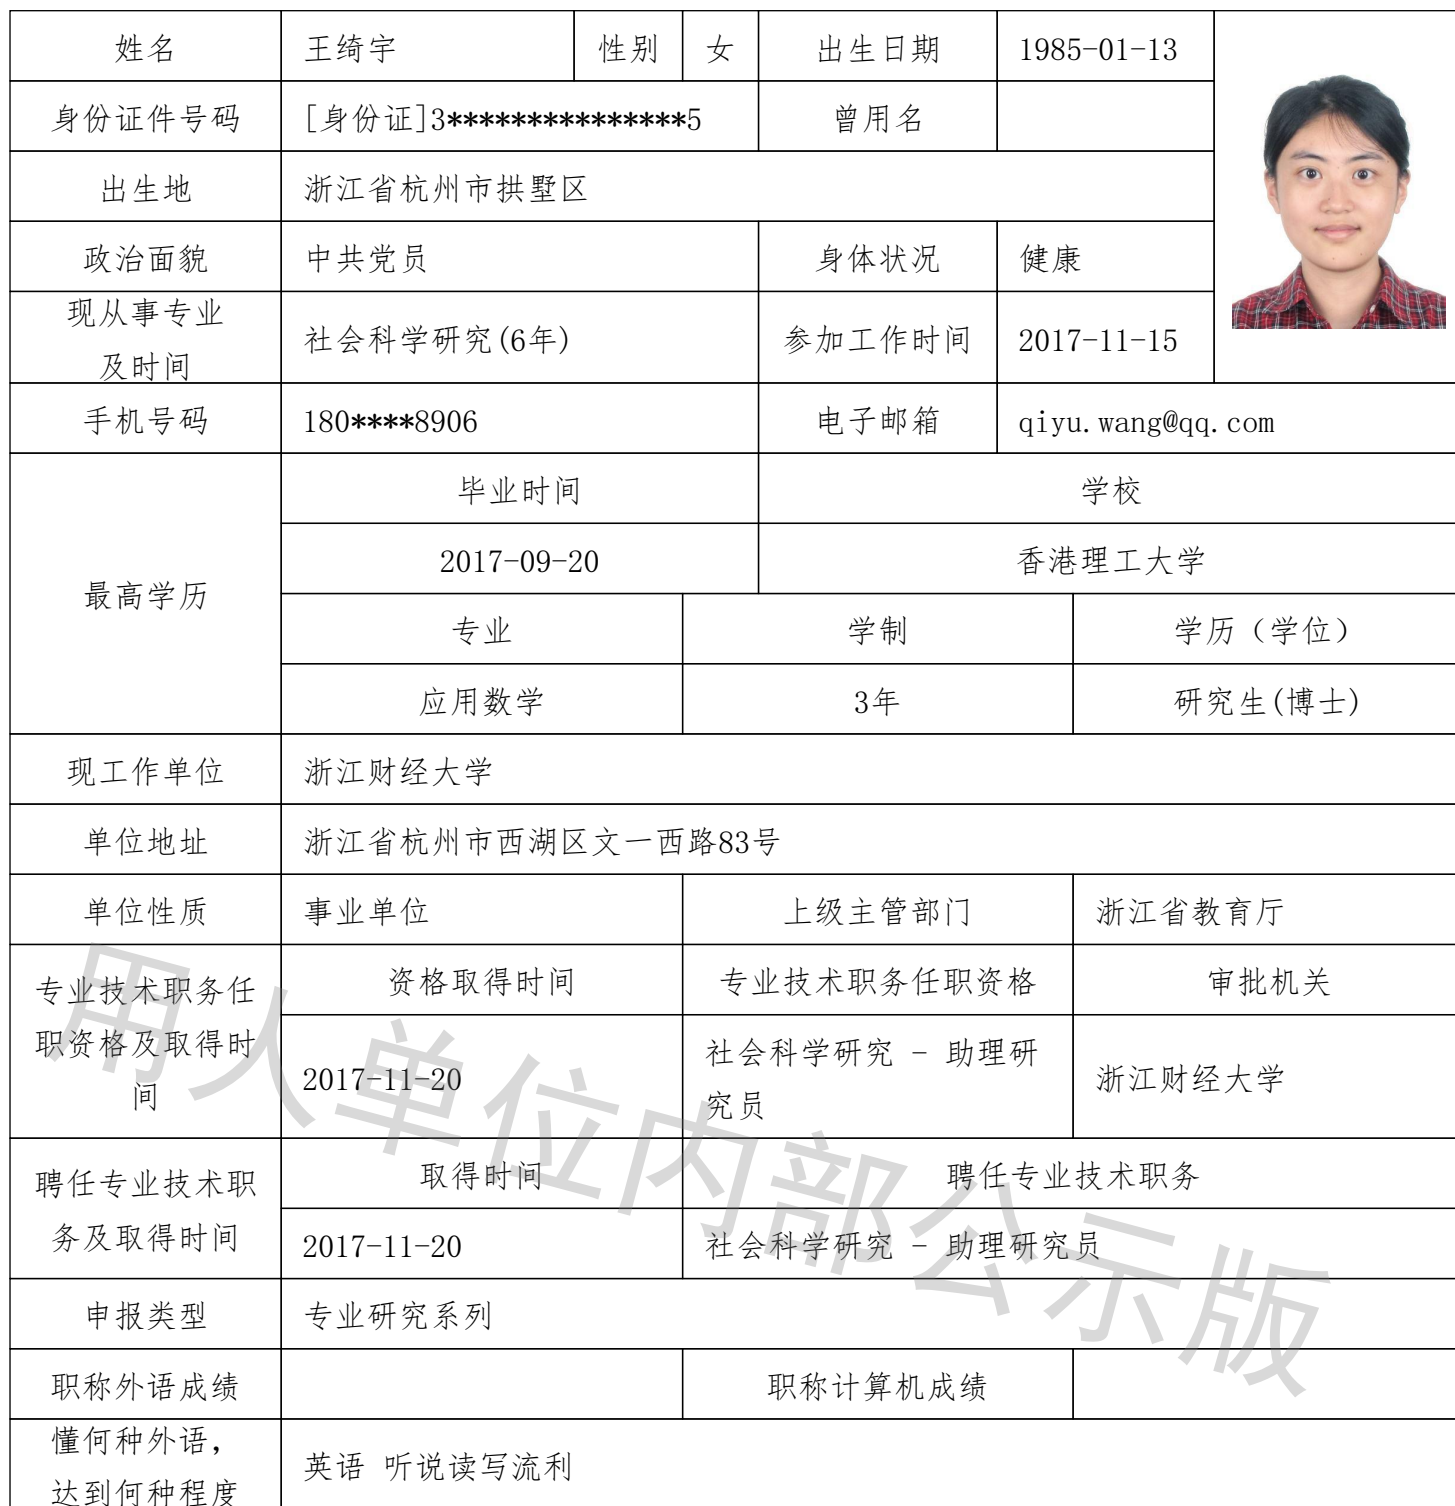 姓名 王绮宇 性别 女 出生日期 1985-01-13
身份证件号码 [身份证]3***************5 曾用名
出生地 浙江省杭州市拱墅区
政治面貌 中共党员 身体状况 健康
现从事专业
及时间 社会科学研究(6年) 参加工作时间 2017-11-15
手机号码 180****8906 电子邮箱 qiyu.wang@qq.com
最高学历
毕业时间 学校
2017-09-20 香港理工大学
专业 学制 学历（学位）
应用数学 3年 研究生(博士)
现工作单位 浙江财经大学
单位地址 浙江省杭州市西湖区文一西路83号
单位性质 事业单位 上级主管部门 浙江省教育厅
专业技术职务任
职资格及取得时
间
资格取得时间 专业技术职务任职资格 审批机关
2017-11-20
社会科学研究 - 助理研
究员
浙江财经大学
聘任专业技术职
务及取得时间
取得时间 聘任专业技术职务
2017-11-20 社会科学研究 - 助理研究员
申报类型 专业研究系列
职称外语成绩 职称计算机成绩
懂何种外语，
达到何种程度
英语 听说读写流利
用人单位内部公示版